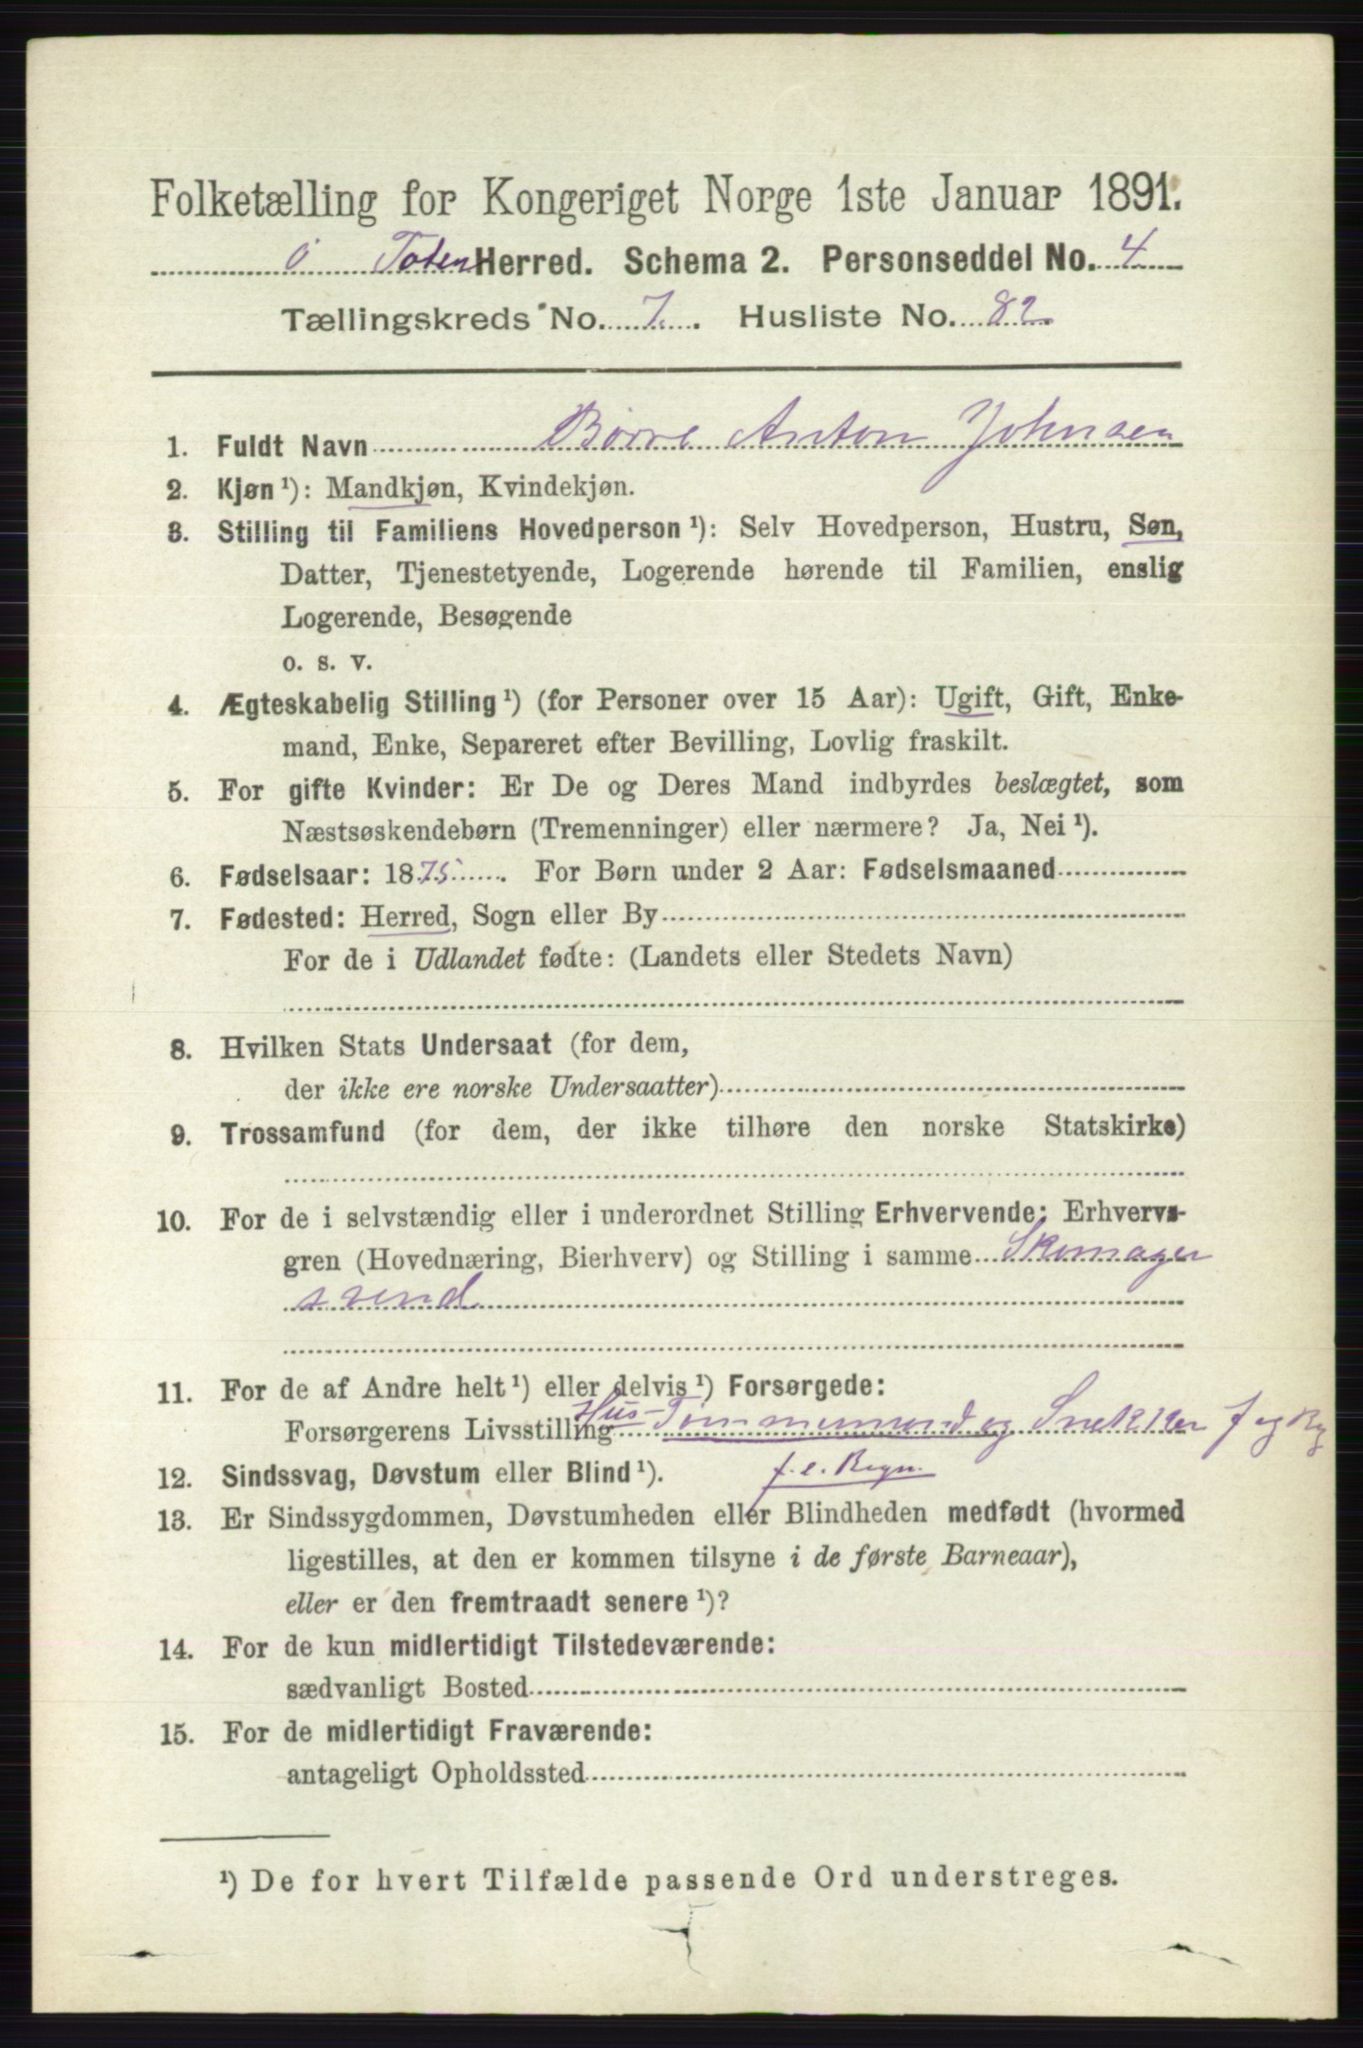 Folketælling for Kongeriget Norge 1ste Januar 1891.
Ö Toten Herred. Schema 2. Personseddel No. 4
Tællingskreds No. 7. Husliste No. 82.
1. Fuldt Navn Börre Anton Johnsen
2. Kjøn ¹): Mandkjøn, Kvindekjøn.
3. Stilling til Familiens Hovedperson ¹): Selv Hovedperson, Hustru, Søn,
Datter, Tjenestetyende, Logerende hørende til Familien, enslig
Logerende, Besøgende
o. s. v.
4. Ægteskabelig Stilling ¹) (for Personer over 15 Aar): Ugift, Gift, Enke-
mand, Enke, Separeret efter Bevilling, Lovlig fraskilt.
5. For gifte Kvinder: Er De og Deres Mand indbyrdes beslægtet, som
Næstsøskendebørn (Tremenninger) eller nærmere? Ja, Nei ¹).
6. Fødselsaar: 1875. For Børn under 2 Aar: Fødselsmaaned
7. Fødested: Herred, Sogn eller By
For de i Udlandet fødte: (Landets eller Stedets Navn)
8. Hvilken Stats Undersaat (for dem,
der ikke ere norske Undersaatter)
9. Trossamfund (for dem, der ikke tilhøre den norske Statskirke)
10. For de i selvstændig eller i underordnet Stilling Erhvervende: Erhvervs-
gren (Hovednæring, Bierhverv) og Stilling i samme Skomager
svend
11. For de af Andre helt ¹) eller delvis ¹) Forsørgede:
Forsørgerens Livsstilling Hus-Tømmermand og Snekker f eg Rg
12. Sindssvag, Døvstum eller Blind ¹). f. e. Regn.
13. Er Sindssygdommen, Døvstumheden eller Blindheden medfødt (hvormed
ligestilles, at den er kommen tilsyne i de første Barneaar),
eller er den fremtraadt senere ¹)?
14. For de kun midlertidigt Tilstedeværende:
sædvanligt Bosted
15. For de midlertidigt Fraværende:
antageligt Opholdssted
¹) De for hvert Tilfælde passende Ord understreges.